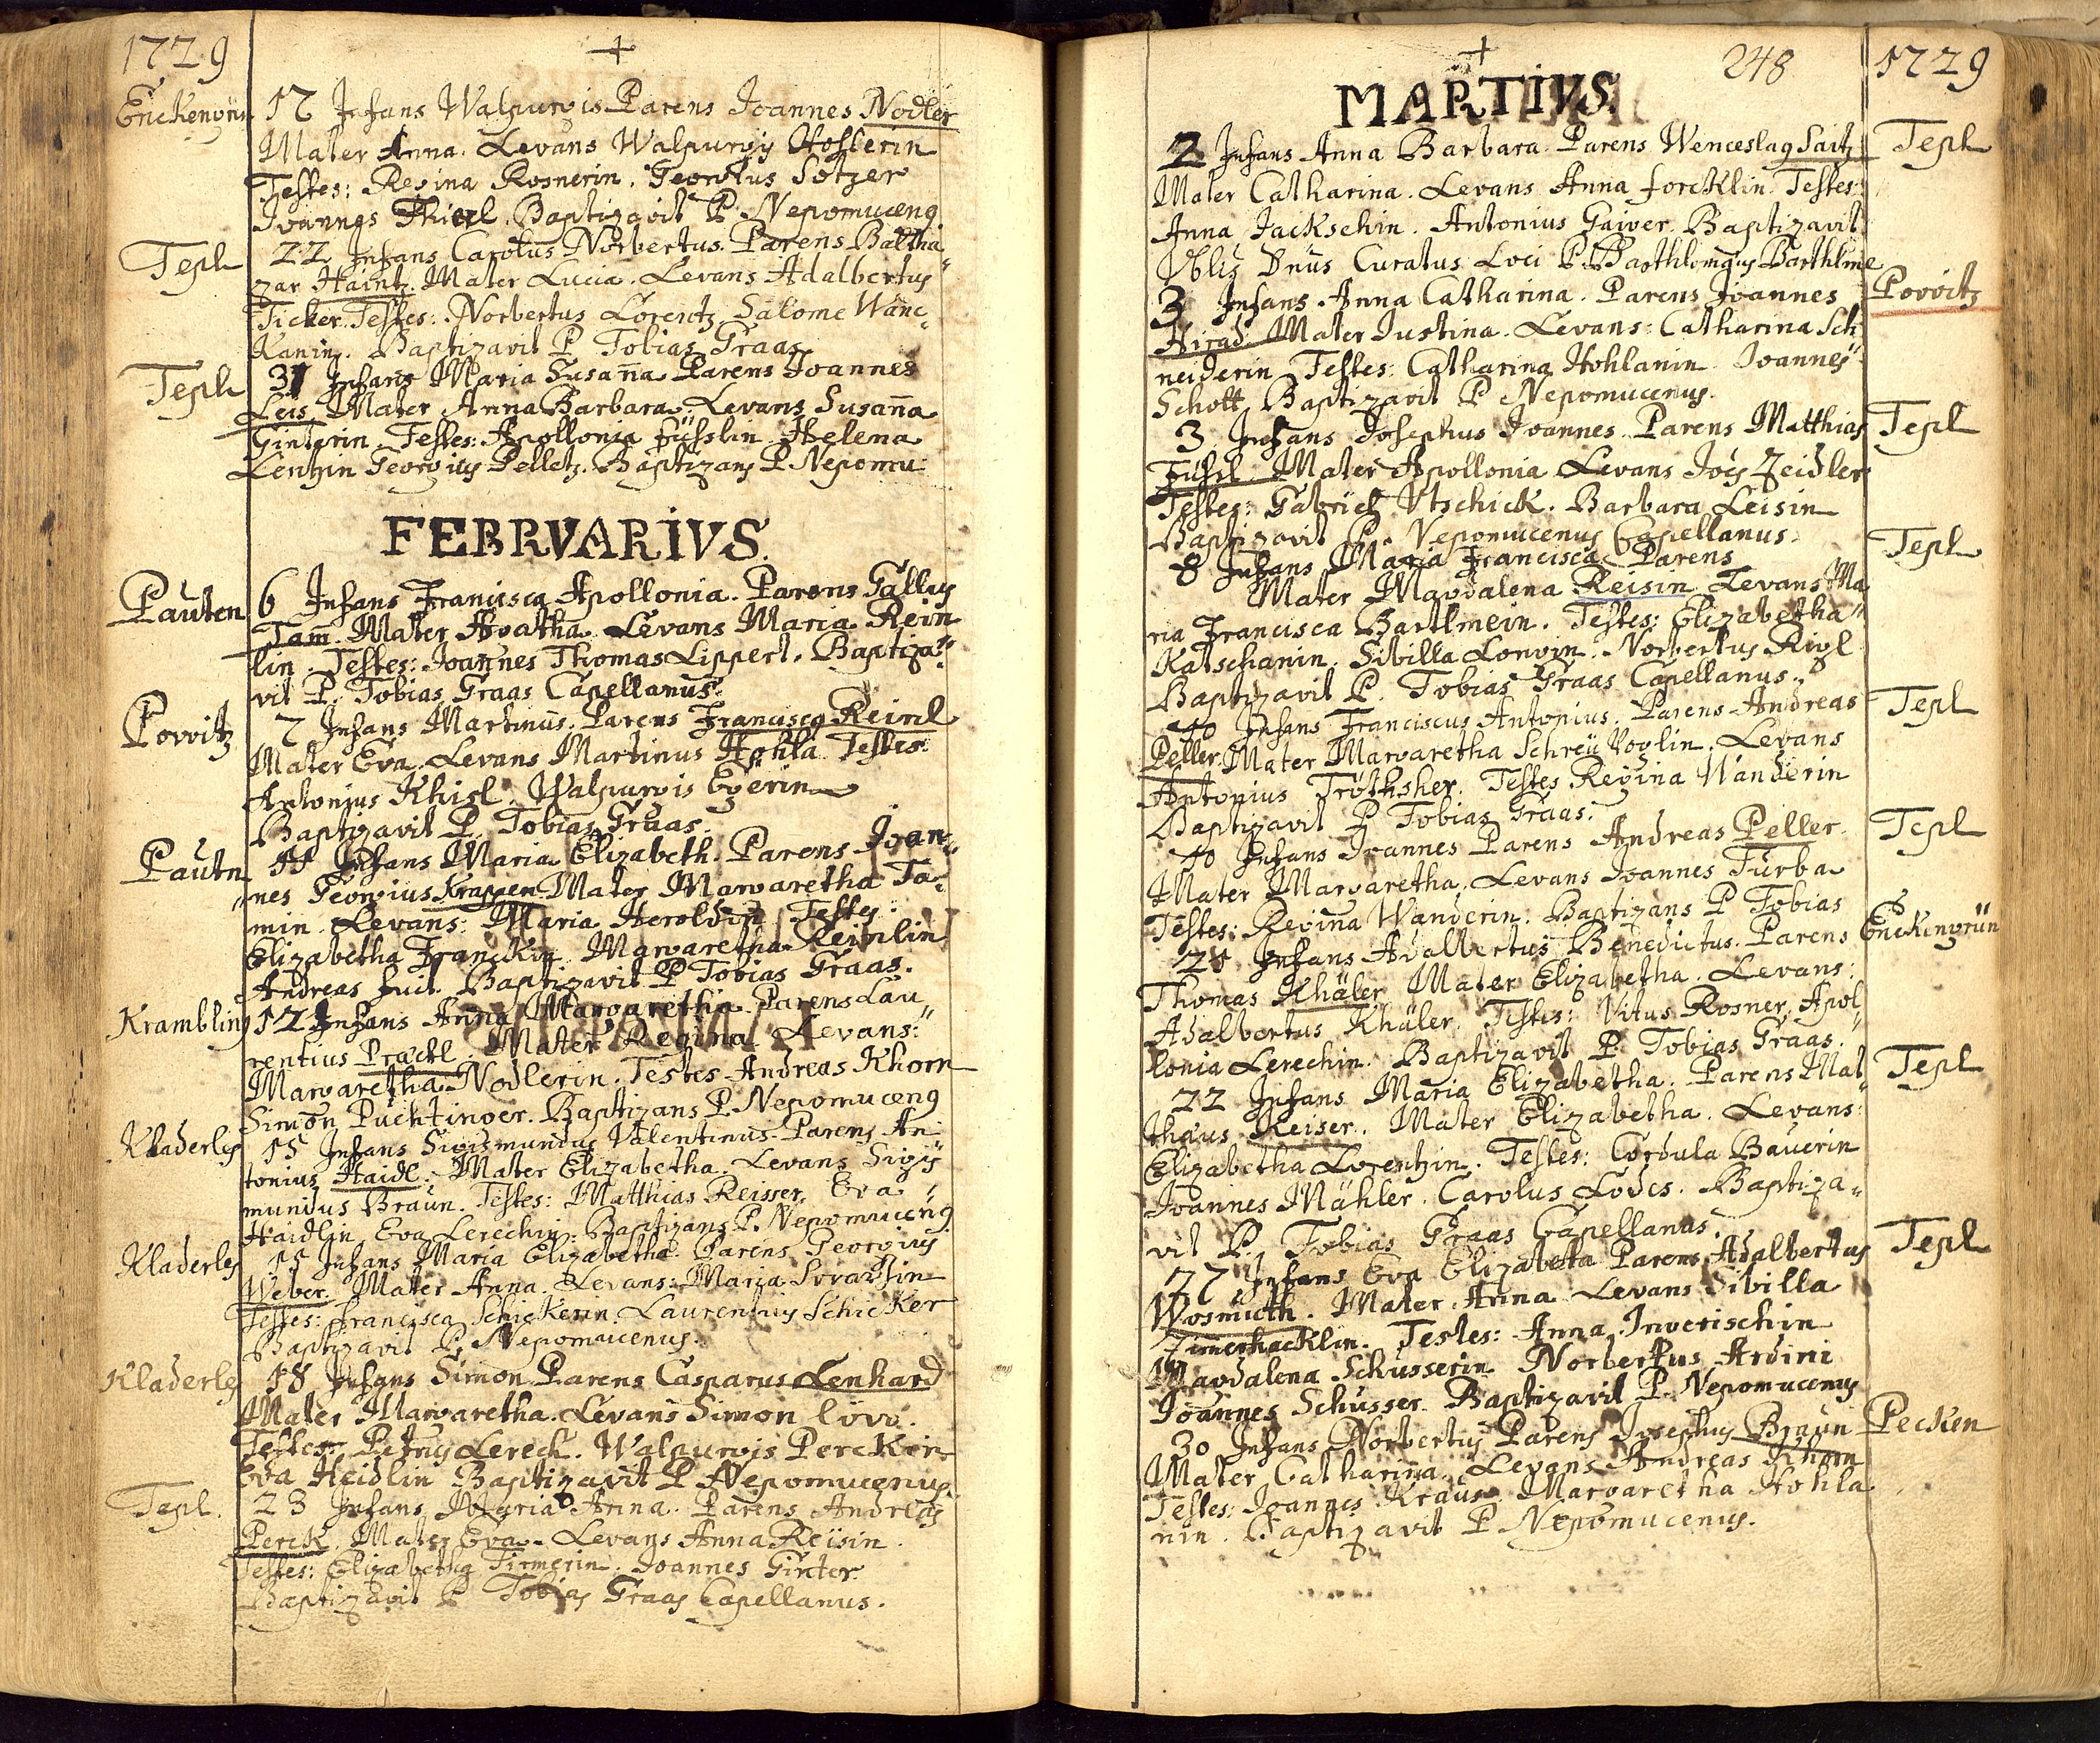 1729
+
Enckengrün 17 Infans Walpurgis Parens Joannes Nodler
Mater Anna. Levans Walpurgÿ Hoslerin
Testes: Regina Rosnerin. Georgius Sötzer
Joannes Thierl. Baptizavit P. Nepomucenꝯ
Tepl 22 Infans Carolus Norbertus. Parens Baltha
zar Haintz. Mater Lucia. Levans Adalbertus
Ticker. Testes: Norbertus Lorentz Salome Wanc
Kanin. Baptizavit P Tobias Graas
Tepl 31 Infans Maria Susaña Parens Joannes
Leis Mater Anna Barbara. Levans Susaña
Ginterin. Testes: Apollonia füsslin. Helena
Lentzin Georgius Pelletz. Baptizans P. Nepomu:
FEBRVARIVS.
Pauten 6 Infans Francisca Apollonia. Parens Gallus
Tam. Mater Agatha. Levans Maria Rein
lin. Testes: Joannes Thomas Lippert. Baptiza"
vit P. Tobias Graas Capellanus.
Pogvitz 7 Infans Martinus. Parens Franciscꝯ Reinl
Mater Eva. Levans Martinus Hohla Testes:
Antonius Khisl. Walpurgis Egerin
Baptizavit P. Tobias Graas.
Pautn 11 Infans Maria Elizabeth. Parens Joan"
"nes Georgius Krappen Mater Margaretha Ta"
min. Levans: Maria Heroldin Testes:
Elizabetha Franckin Margaretha Reinlin
Andreas fuit. Baptizavit P Tobias Graas.
Krambling 12 Infans Anna Margaretha. Parens Lau"
rentius Prackl. Mater Regina Levans:
Margaretha Nodlerin. Testes Andreas Khorn
Simon Puchtinger. Baptizans P. Nepomucenꝯ
Kladerles 15 Infans Sigismundus Valentinus. Parens An
tonius Haidl. Mater Elizabetha. Levans Sigis
mundus Braun. Testes: Matthias Reisser. Eva
Haidlin Eva Lerechin. Baptizans P. Nepomucenꝯ
Kladerles 15 Infans Maria Elizabetha. Parens Georgius
Weber. Mater Anna. Levans: Maria
Testes: Francisca Schickerin. Laurentius Schicker
Baptizavit P. Nepomucenus.
Kladerles 18 Infans Simon Parens Casparus Lenhard
Mater Margaretha. Levans Simon
Testes: Petrus Lerech. Walpurgis Perckin
Eva Heidlin Baptizavit P Nepomucenus.
Tepl. 23 Infans Maria Anna. Parens Andreas
Perck. Mater Eva. Levans Anna Reisin.
Testes: Elizabetha Firmerin. Joannes Ginter
Baptizavit P Tobias Graas Capellanus.
+
248 1729
MARTIVS.
2 Infans Anna Barbara. Parens Wenceslaꝯ Saitz Tepl
Mater Catharina. Levans Anna forcklin. Testes:
Anna Jackschin. Antonius Gaiger. Baptizavit
Nblis Dnus Curatus Loci P. Barthlomæus Barthlme
3 Infans Anna Catharina. Parens Joannes Pogvitz
Hirad. Mater Justina. Levans: Catharina Sch
neiderin Testes: Catharina Hohlanin. Joannes
Schott Baptizavit P Nepomucenus.
3 Infans Josephus Joannes. Parens Matthias Tepl
Füsl. Mater Apollonia Levans Joës Zeidler
Testes: Gabriel Utschick. Barbara Leisin
Baptizavit P. Nepomucenus Capellanus.
8 Infans Maria Francisca Parens Tepl
Mater Magdalena Reisin Levans Ma
ria Francisca Bartlmein. Testes: Elizabetha"
Katschanin. Sibilla Longin. Norbertus Rigl
Baptizavit P. Tobias Graas Capellanus.
10 Infans Franciscus Antonius. Parens Andreas Tepl
Peller. Mater Margaretha Schreü Voglin. Levans
Antonius Tröthsher. Testes Regina Wanderin
Baptizavit P Tobias Graas.
10 Infans Joannes Parens Andreas Peller Tepl
Mater Margaretha. Levans Joannes Turba
Testes: Regina Wanderin. Baptizans P Tobias
21 Infans Adalbertus Benedictus. Parens Enckengrün
Thomas Khäler Mater Elizabetha. Levans:
Adalbertus Khäler. Testes: Vitus Rosner. Apol
lonia Lerechin. Baptizavit P. Tobias Graas.
22 Infans Maria Elizabetha. Parens Mat Tepl
thæus Keiser. Mater Elizabetha. Levans:
Elizabetha Lorentzin. Testes: Cordula Bauerin
Joannes Mähler. Carolus Lodes. Baptiza"
vit P. Tobias Graas Capellanus.
27 Infans Eva Elizabeta Parens Adalbertus Tepl
Wosmuth. Mater Anna. Levans Sibilla
Zimerhacklin. Testes: Anna Ingerischin
Magdalena Schusserin Norbertus Ardini
Joannes Schusser. Baptizavit P. Nepomucenus
30 Infans Norbertus Parens Josephus Braun Pecken
Mater Catharina. Levans Andreas Khorn
Testes: Joannes Kraus. Margaretha Hohla
nin. Baptizavit P Nepomucenus.